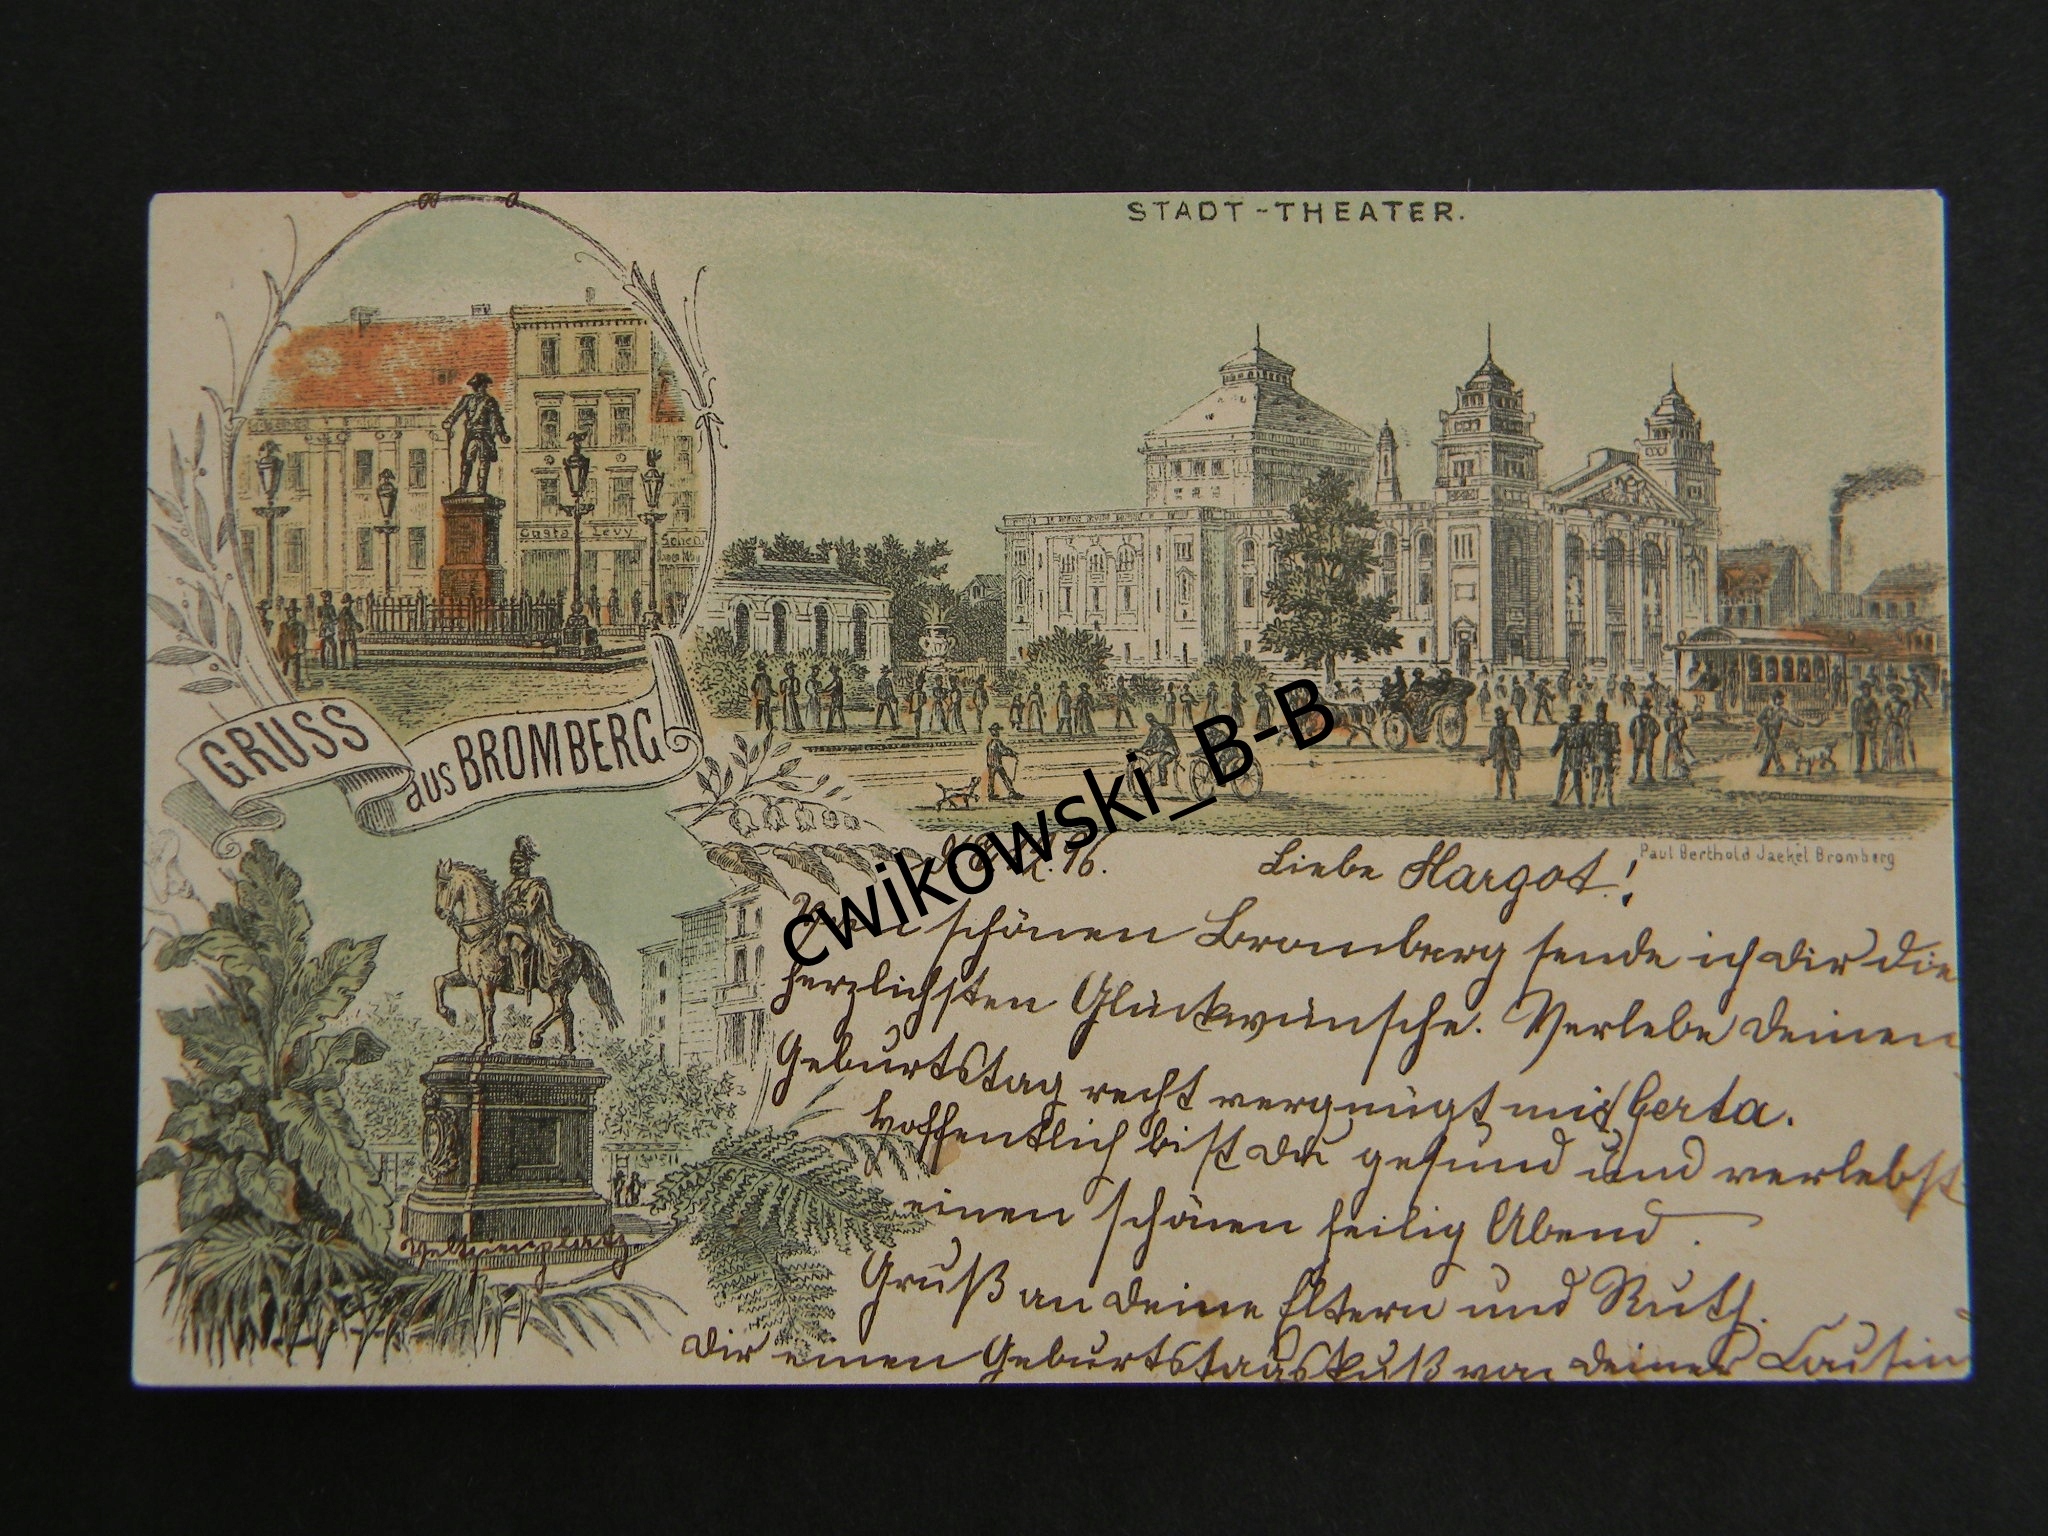 STADT-THEATER.
Gustav Levy
GRUSS
aus BROMBERG
Paul Berthold Jaekel Bromberg
cwikowski_B-B
Liebe Margot!
schönen Bromberg sende ich dir die
herzlichsten Glückwünsche. Verlebe deinen
Geburtstag recht vergnügt mit Gerta.
Hoffentlich bist du gesund und verlebst
einen schönen heilig Abend.
Gruß an deine Eltern und Ruth.
Dir einen Geburtstagskuß von deiner Cousine
Weltzienplatz